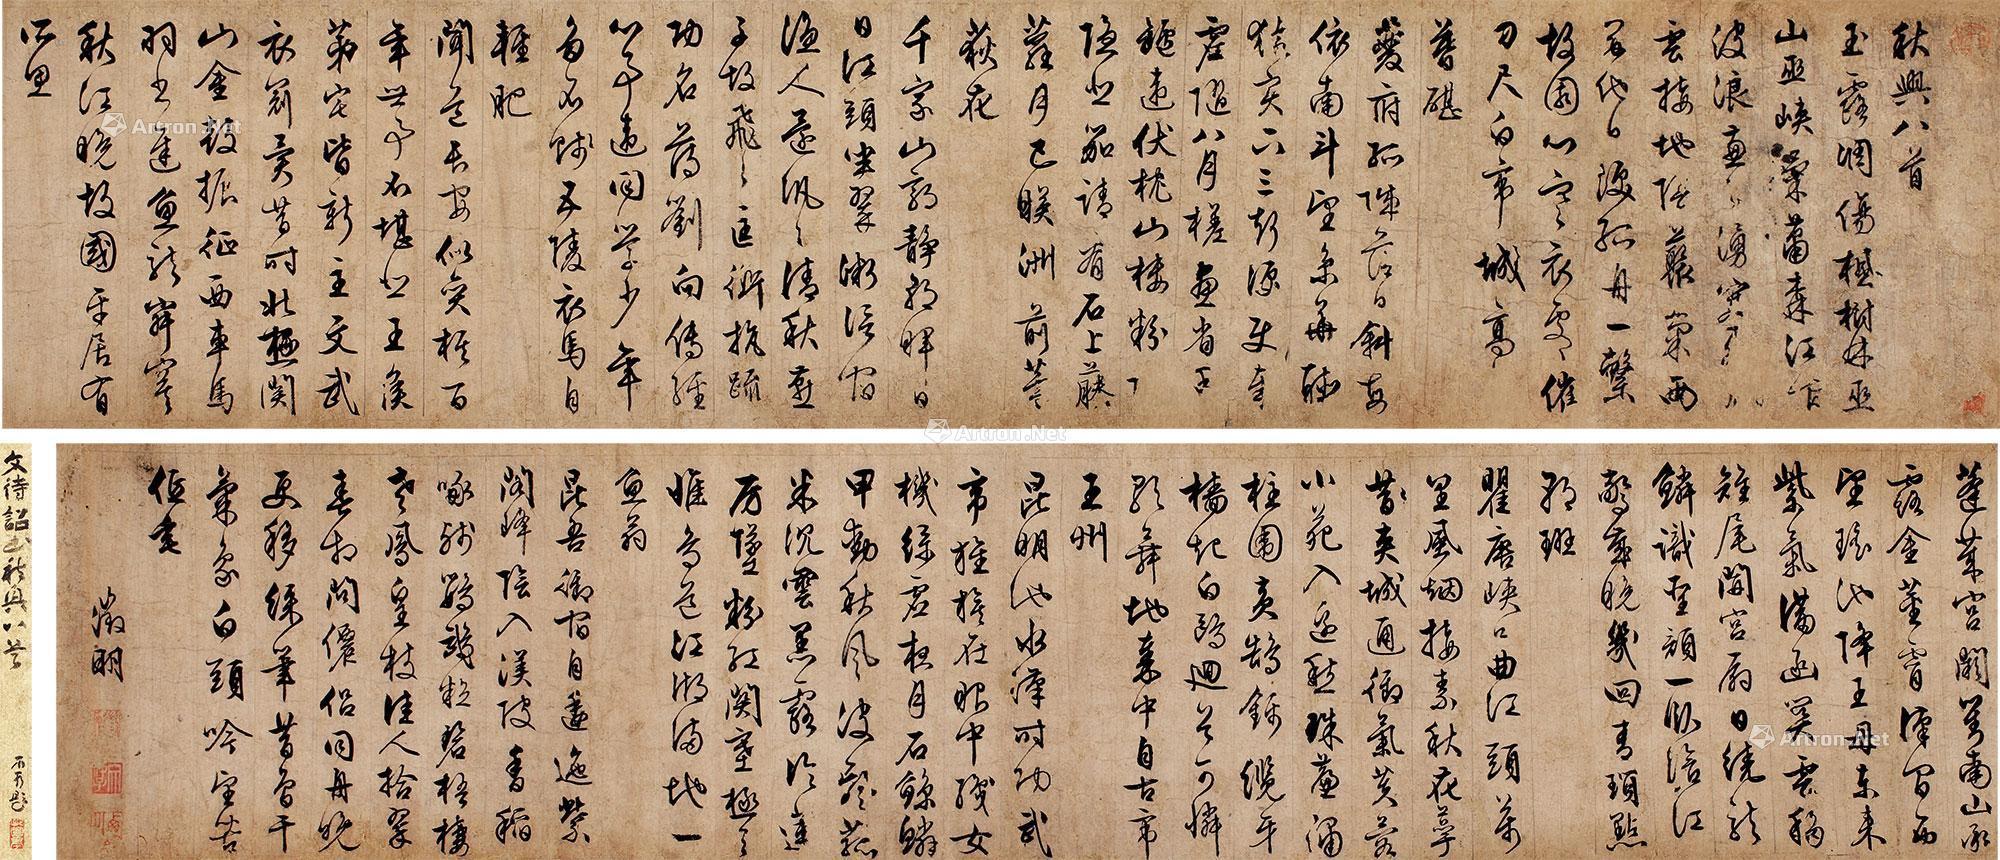 秋興八首
玉露凋傷楓樹林巫
山巫峽氣蕭森江
波浪兼湧
雲接地陰叢菊兩
開他日淚孤舟一繫
故園心寒衣處處催
刀尺白帝城高
暮砧
夔府孤城落日斜每
依南斗望京華聽
猿實下三聲淚奉使
虛隨八月槎畫省香
爐違伏枕山樓粉
隱悲笳請看石上藤
蘿月已映洲前蘆
荻花
千家山郭靜朝暉日
日江頭坐翠微信宿
漁人還汎汎清秋燕
子故飛飛匡衡抗疏
功名薄劉向傳經
心事違同學少年
多不賤五陵衣馬自
輕肥
聞道長安似奕棋百
年世事不堪悲王侯
第宅皆新主文武
衣冠異昔時北極關
山金鼓振征西車馬
羽書遲魚龍寂寞
秋江晚故國平居有
所思
蓬萊宮闕對南山承
露金莖霄漢間西
望瑤池降王母東來
紫氣滿函關雲移
雉尾開宮扇日繞龍
鱗識聖顏一臥滄江
驚歲晚幾回青瑣點
朝班
瞿唐峽口曲江頭萬
里風烟接素秋花萼
夾城通御氣芙蓉
小苑入邊愁珠簾繡
柱圍黃鵠錦纜牙
檣起白鷗迴首可憐
歌舞地秦中自古帝
王州
昆明池水漢時功武
帝旌旗在眼中織女
機絲虛夜月石鯨鱗
甲動秋風波漂菰
米沉雲黑露冷蓮
房墜粉紅關塞極天
惟鳥道江湖滿地一
漁翁
昆吾御宿自逶迤紫
閣峰陰入渼陂香稻
啄殘鸚鵡粒碧梧棲
老鳳皇枝佳人拾翠
春相問僊侶同舟晚
更移綵筆昔曾干
氣象白頭吟望苦
低垂
徵明
文待詔書秋興八首
Artron.Net
Artron.Net
Artron.Net
Artron.Net
Artron.Net